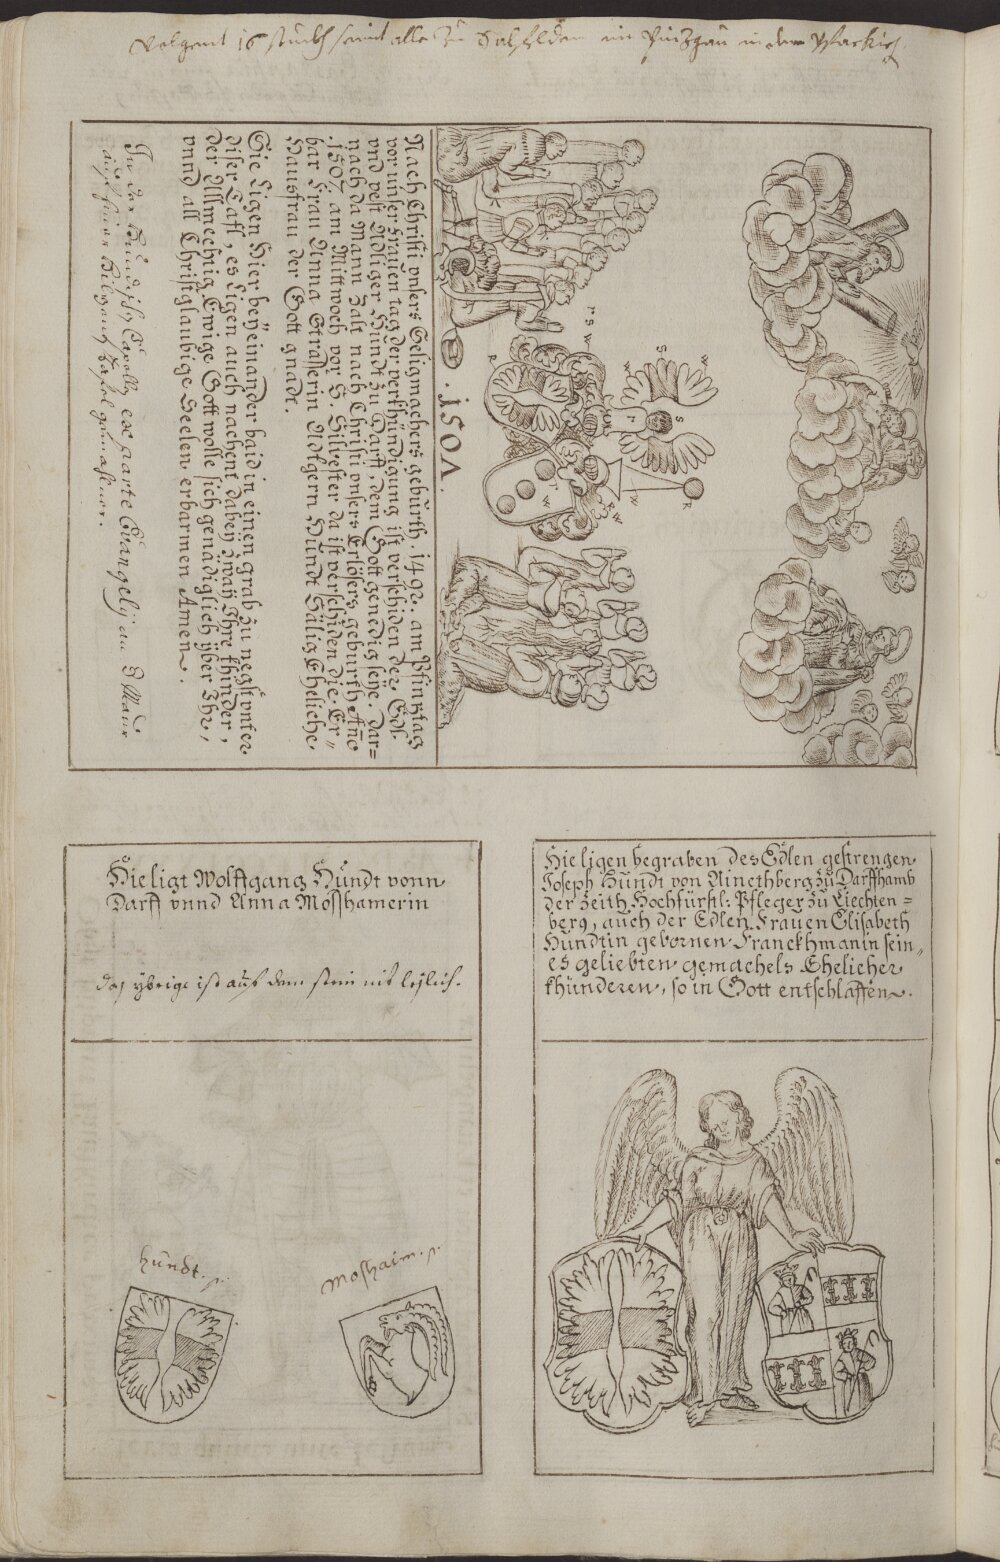 Volgent 16 stuckh seint alle zu Salfelden im Pinzgau in der Pfarkirch.
W
S
W
S
r s w
R
R
W
R
W
r
W
.1507.
Nach Christi unsers Seligmachers geburth .1492. am Pfinztag
vor unser Frauen tag der verkhündigung ist verschiden der Edl
und vest Adlger Hundt zu Darff, dem Gott genedig seye. Dar=
nach da Mann zalt nach Christi unsers Erlösers geburth Año
.1507. am Mittwoch vor S. Silvester da ist verschiden die Er=
bar Frau Anna Strasserin Adlgern Hundt Sälig Eheliche
Hausfrau der Gott gnadt.
Sie Ligen Hier beyeinander baid in einen grab zu negst unter
diser Tafl, es Ligen auch nachent dabey zway Ihre khinder,
der Allmechtig Ewige Gott wolle sich genädiglich yber Ihr,
unnd all Christglaubige Seelen erbarmen Amen.
In der Hundischen Capelln ex parte Evangelij an d Maur
auf einer hilzenen Tafel gemahlner.
Hie ligt Wolffgang Hundt vonn
Darff unnd Anna Mosshamerin
das ybrige ist auf dem stein nit leslich.
Hundt.
Moshaim.
Hie ligen begraben des Edlen gestrengen
Joseph Hundt von Ainethberg zu Darffhamb
der Zeith Hochfürstl: Pfleger zu Liechten=
berg, auch der Edlen Frauen Elisabeth
Hundtin gebornen Franckhmanin sein=
es geliebten gemachels Ehelicher
khünderen, so in Gott entschlaffen.